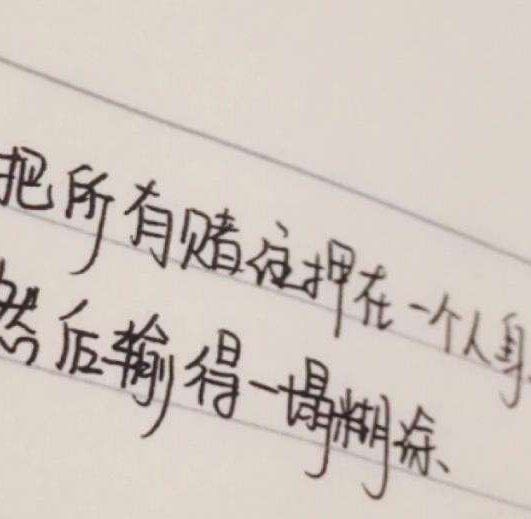 把所有赌注押在一个人身
然后输得一塌糊涂、